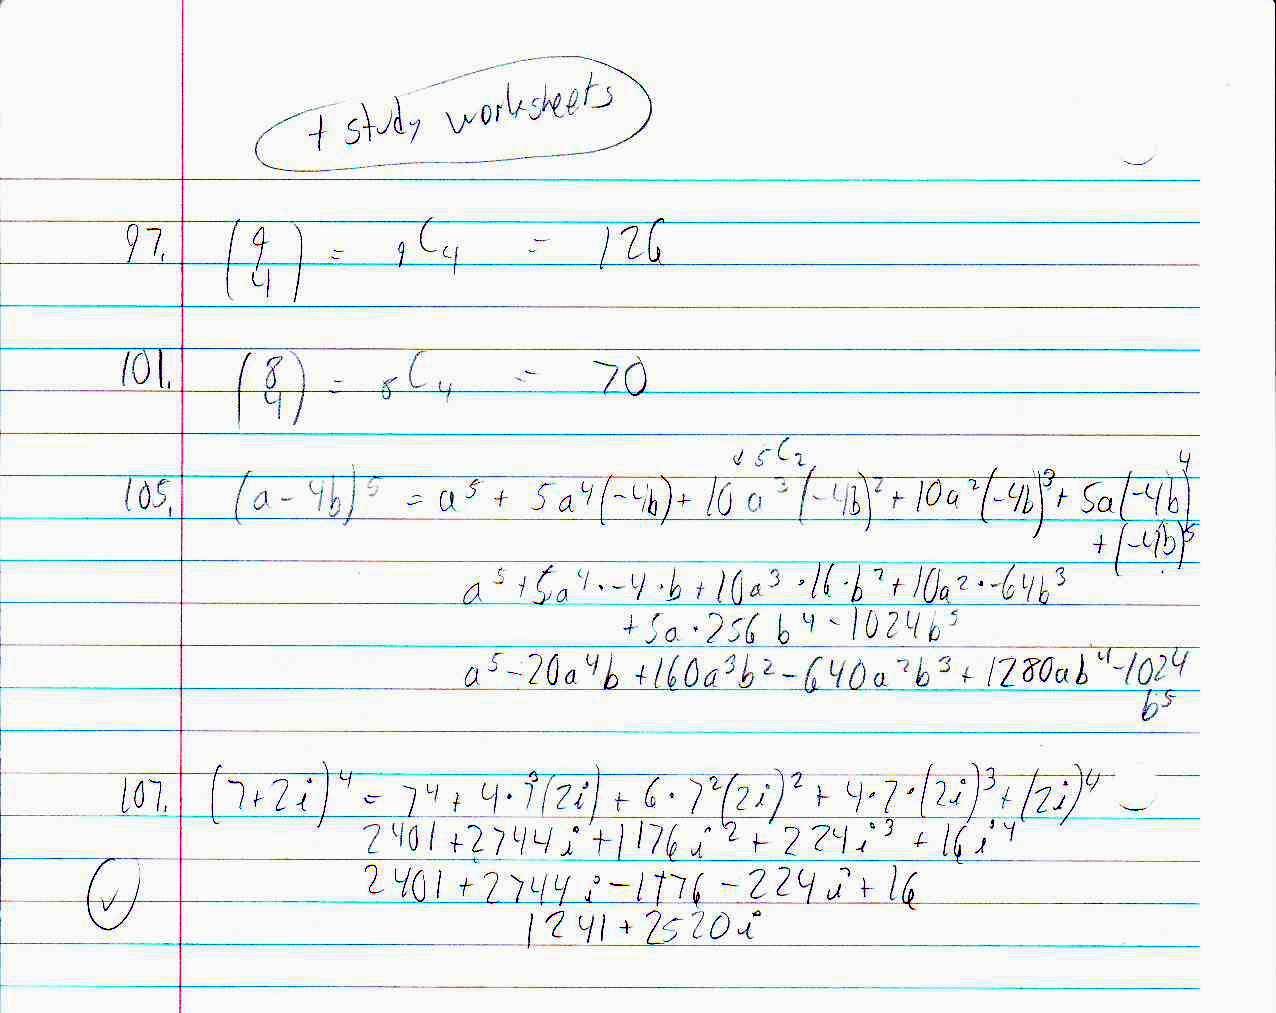 + study worksheets
97. (9 4) = ₉C₄ = 126
101. (8 4) = ₈C₄ = 70
↙ ₅C₂
105. (a - 4b)⁵ = a⁵ + 5a⁴(-4b) + 10a³(-4b)² + 10a²(-4b)³ + 5a(-4b)⁴
+ (-4b)⁵
a⁵ + 5a⁴ · -4 · b + 10a³ · 16 · b² + 10a² · -64b³
+ 5a · 256 b⁴ - 1024b⁵
a⁵ - 20a⁴b + 160a³b² - 640a²b³ + 1280ab⁴ - 1024
b⁵
107. (7+2i)⁴ = 7⁴ + 4 · 7³(2i) + 6 · 7²(2i)² + 4 · 7 · (2i)³ + (2i)⁴
2401 + 2744i + 1176i² + 224i³ + 16i⁴
2401 + 2744i - 1176 - 224i + 16
1241 + 2520i